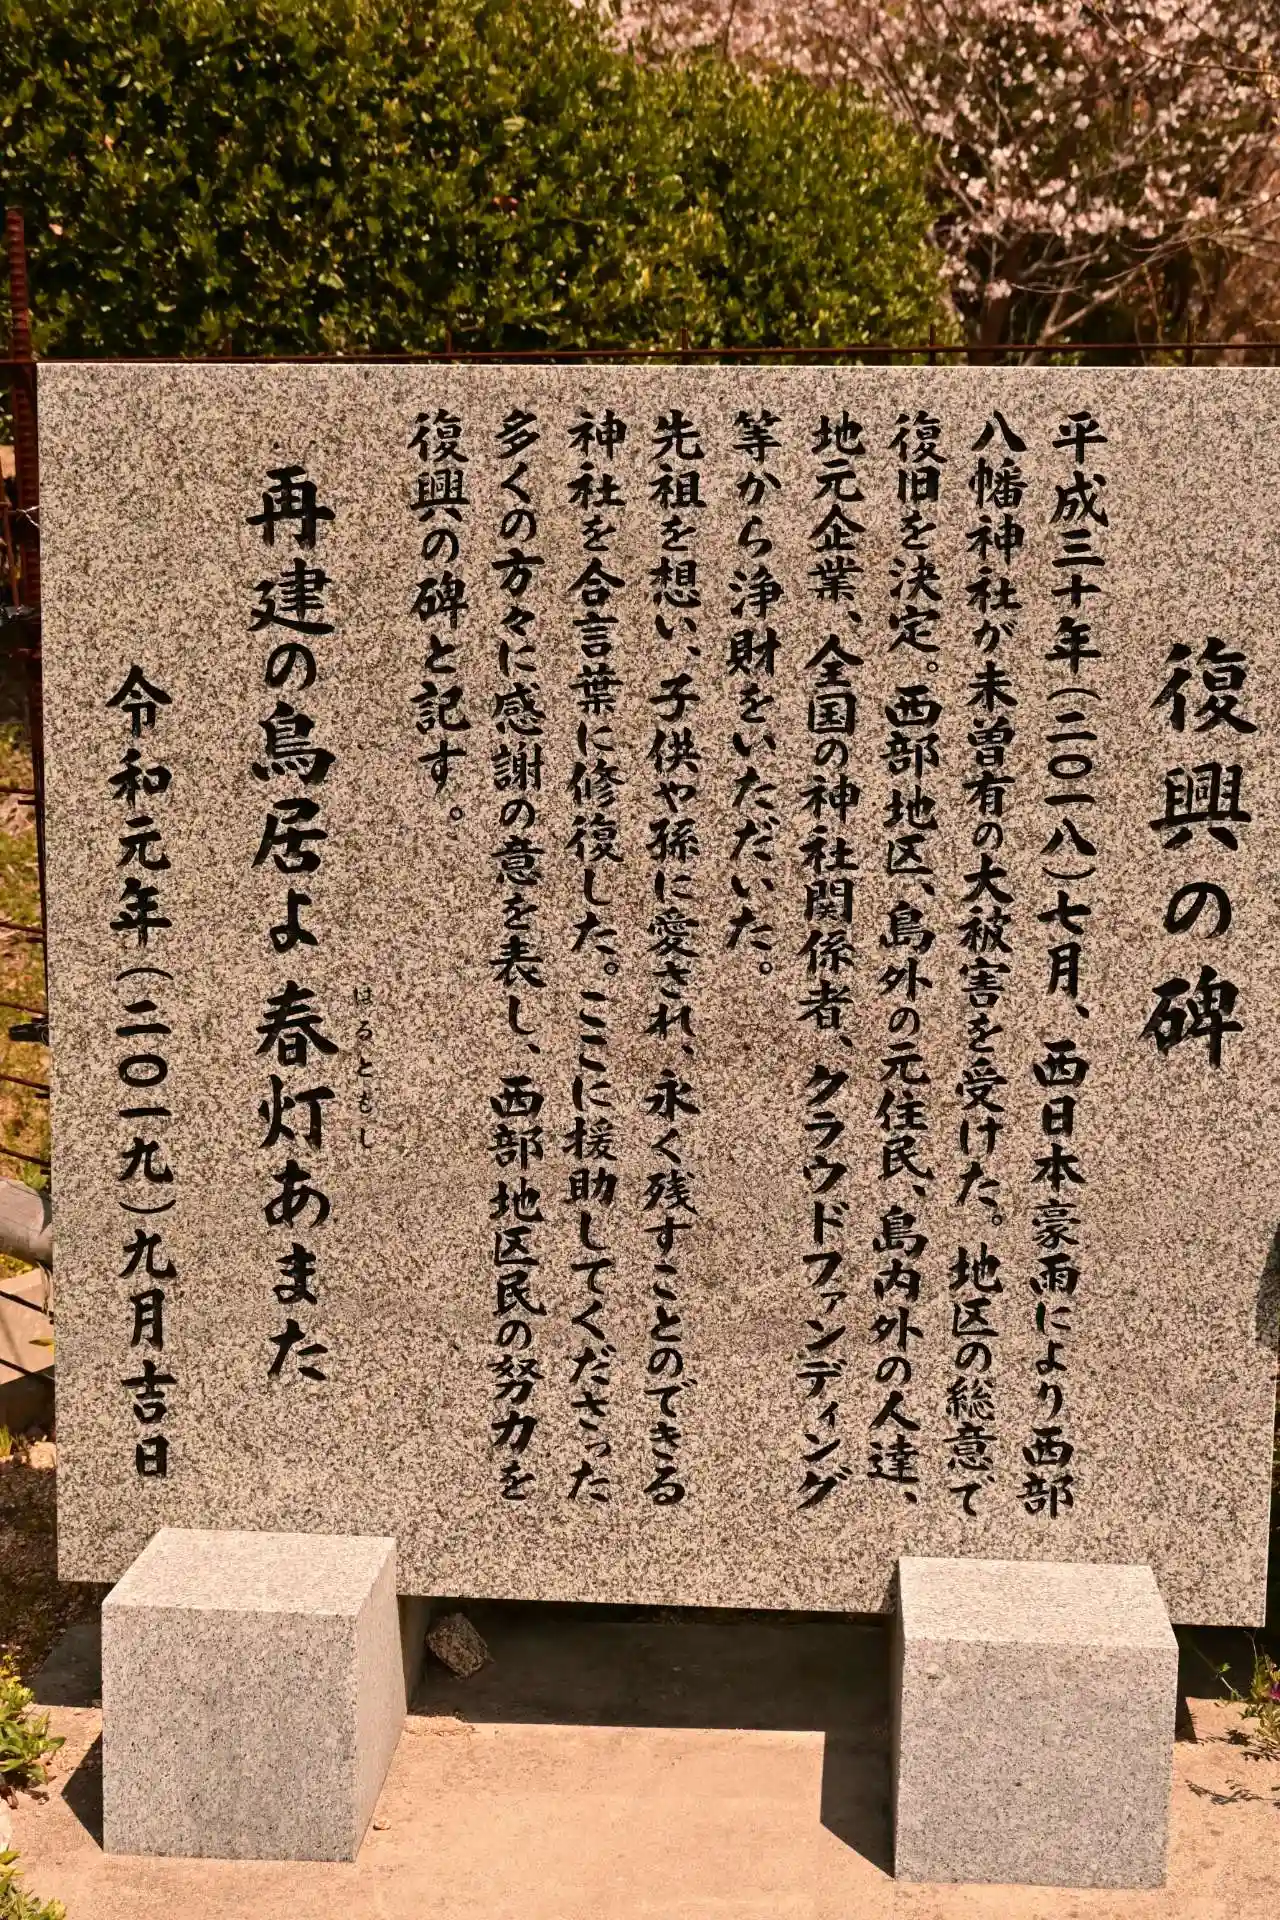 復興の碑
平成三十年(二〇一八)七月、西日本豪雨により西部
八幡神社が未曽有の大被害を受けた。地区の総意で
復旧を決定。西部地区、島外の元住民、島内外の人達、
地元企業、全国の神社関係者、クラウドファンディング
等から浄財をいただいた。
先祖を想い、子供や孫に愛され、永く残すことのできる
神社を合言葉に修復した。ここに援助してくださった
多くの方々に感謝の意を表し、西部地区民の努力を
復興の碑と記す。
はるともし
再建の鳥居よ春灯あまた
令和元年(二〇一九)九月吉日